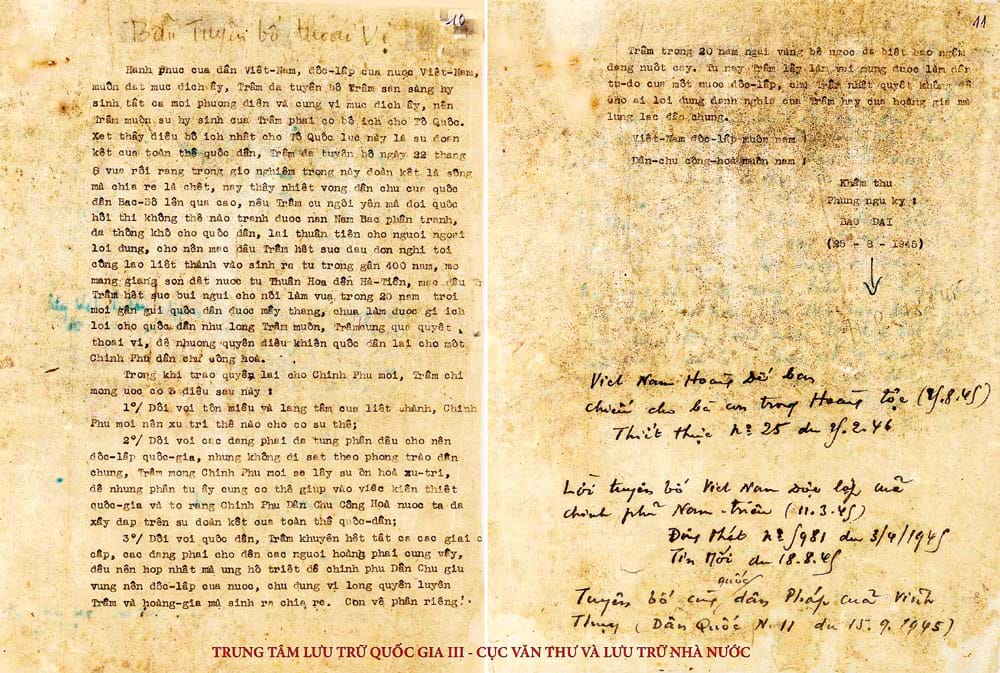 10
Bản Tuyên bố thoái Vị
Hanh phuc cua dân Viêt-Nam, dôc-lâp cua nuoc Viêt-Nam,
muôn dat muc dich ây, Trâm da tuyên bô Trâm san sàng hy
sinh tât ca moi phuong diên và cung vi muc dich ây, nên
Trâm muôn su hy sinh cua Trâm phai co bô ich cho Tô Quôc.
Xet thây diêu bô ich nhât cho Tô Quôc luc này là su doan
kêt cua toàn thê quôc dân, Trâm da tuyên bô ngày 22 thang
8 vua rôi rang trong gio nghiêm trong này doàn kêt là sông
mà chia re là chêt, nay thây nhiêt vong dân chu cua quôc
dân Bac-Bô lên qua cao, nêu Trâm cu ngôi yên mà doi quôc
hôi thi không thê nào tranh duoc nan Nam Bac phân tranh,
da thông khô cho quôc dân, lai thuân tiên cho nguoi ngoài
loi dung, cho nên mac dâu Trâm hêt suc dau don nghi toi
công lao liêt thành vào sinh ra tu trong gân 400 nam, mo
mang giang son dât nuoc tu Thuân Hoa dên Hà-Tiên, mac dâu
Trâm hêt suc bui ngui cho nôi làm vua, trong 20 nam troi
moi gân gui quôc dân duoc mây thang, chua làm duoc gi ich
loi cho quôc dân nhu long Trâm muôn, Trâm cung qua quyêt
thoai vi, dê nhuong quyên diêu khiên quôc dân lai cho môt
Chinh Phu dân chu công hoà.
Trong khi trao quyên lai cho Chinh Phu moi, Trâm chi
mong uoc co 3 diêu sau này :
1°/ Dôi voi tôn miêu và lang tâm cua liêt thành, Chinh
Phu moi nên xu tri thê nào cho co su thê;
2°/ Dôi voi cac dang phai da tung phân dâu cho nên
dôc-lâp quôc-gia, nhung không di sat theo phong trào dân
chung, Trâm mong Chinh Phu moi se lây su ôn hoà xu-tri,
dê nhung phân tu ây cung co thê giup vào viêc kiên thiêt
quôc-gia và to rang Chinh Phu Dân Chu Công Hoà nuoc ta da
xây dap trên su doàn kêt cua toàn thê quôc-dân;
3°/ Dôi voi quôc dân, Trâm khuyên hêt tât ca cac giai c
câp, cac dang phai cho dên cac nguoi hoàng phai cung vây,
dêu nên hop nhât mà ung hô triêt dê chinh phu Dân Chu giu
vung nên dôc-lâp cua nuoc, chu dung vi long quyên luyên
Trâm và hoàng-gia mà sinh ra chia re. Con vê phân riêng!
11
Trâm trong 20 nam ngai vàng bê ngoc da biêt bao ngâm
dang nuôt cay. Tu nay Trâm lây làm vui mung duoc làm dân
tu-do cua môt nuoc dôc-lâp, chu Trâm nhât quyêt không dê
cho ai loi dung danh nghia cua Trâm hay cua hoàng gia mà
lung lac dân chung.
Viêt-Nam dôc-lâp muôn nam !
Dân-chu công-hoà muôn nam !
Khâm thu
Phung ngu ky :
BAO DAI
(25 - 8 - 1945)
Viet Nam Hoàng Đế ban
chiếu cho bà con trong Hoàng tộc (25.8.45)
Thiết thực Nº 25 du 25.2.46
Lời tuyên bố Viet Nam Độc lập của
chính phủ Nam-triều (11.3.45)
Đông Phát Nº 5981 du 3/4/1945
Tin Mới du 18.8.45
Tuyên bố cùng quốc dân Pháp của Vĩnh
Thụy (Dân Quốc N. 11 du 15.9.1945)
TRUNG TÂM LƯU TRỮ QUỐC GIA III - CỤC VĂN THƯ VÀ LƯU TRỮ NHÀ NƯỚC